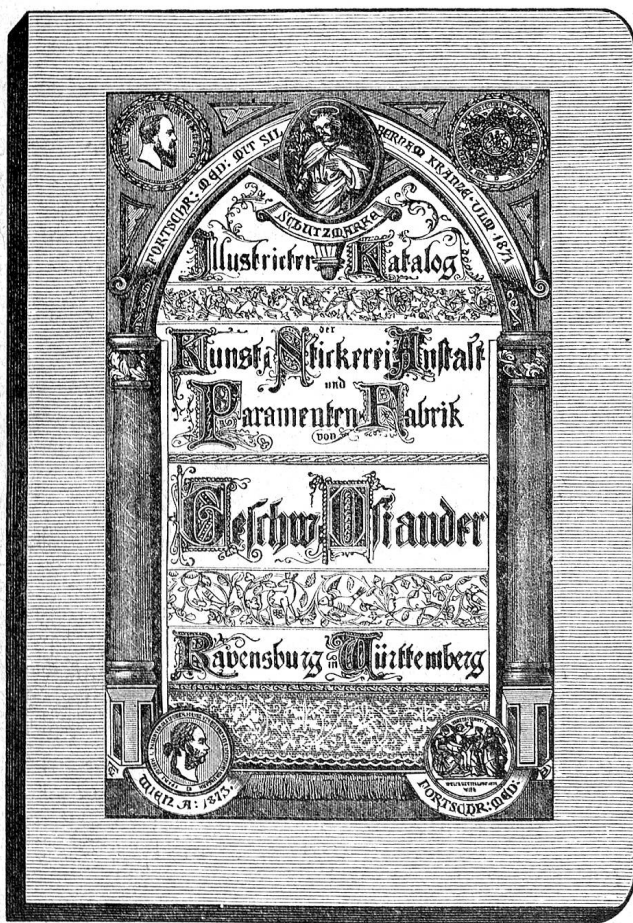 FORTSCHR: MED: MIT SILBERNEM KRANZE · ULM · 1871
SCHUTZMARKE
Illustrirter Katalog
der
Kunst Stickerei Anstalt
und
Paramenten Fabrik
von
Geschw. Osiander
Ravensburg in Württemberg
WIEN A: 1873.
FORTSCHR: MED: